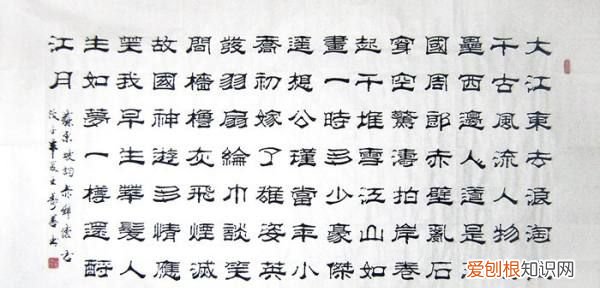 大江東去浪淘
千古風流人物
壘西邊人道是
國周郎赤壁亂石
穿空驚濤拍岸卷
起千堆雪江山如
畫一時多少豪傑
遙想公瑾當年小
喬初嫁了雄姿英
發羽扇綸巾談笑
間檣櫓灰飛煙滅
故國神遊多情應
笑我早生華髮人
生如夢一樽還酹
江月
蘇東坡詞赤壁懷古
爱刨根知识网